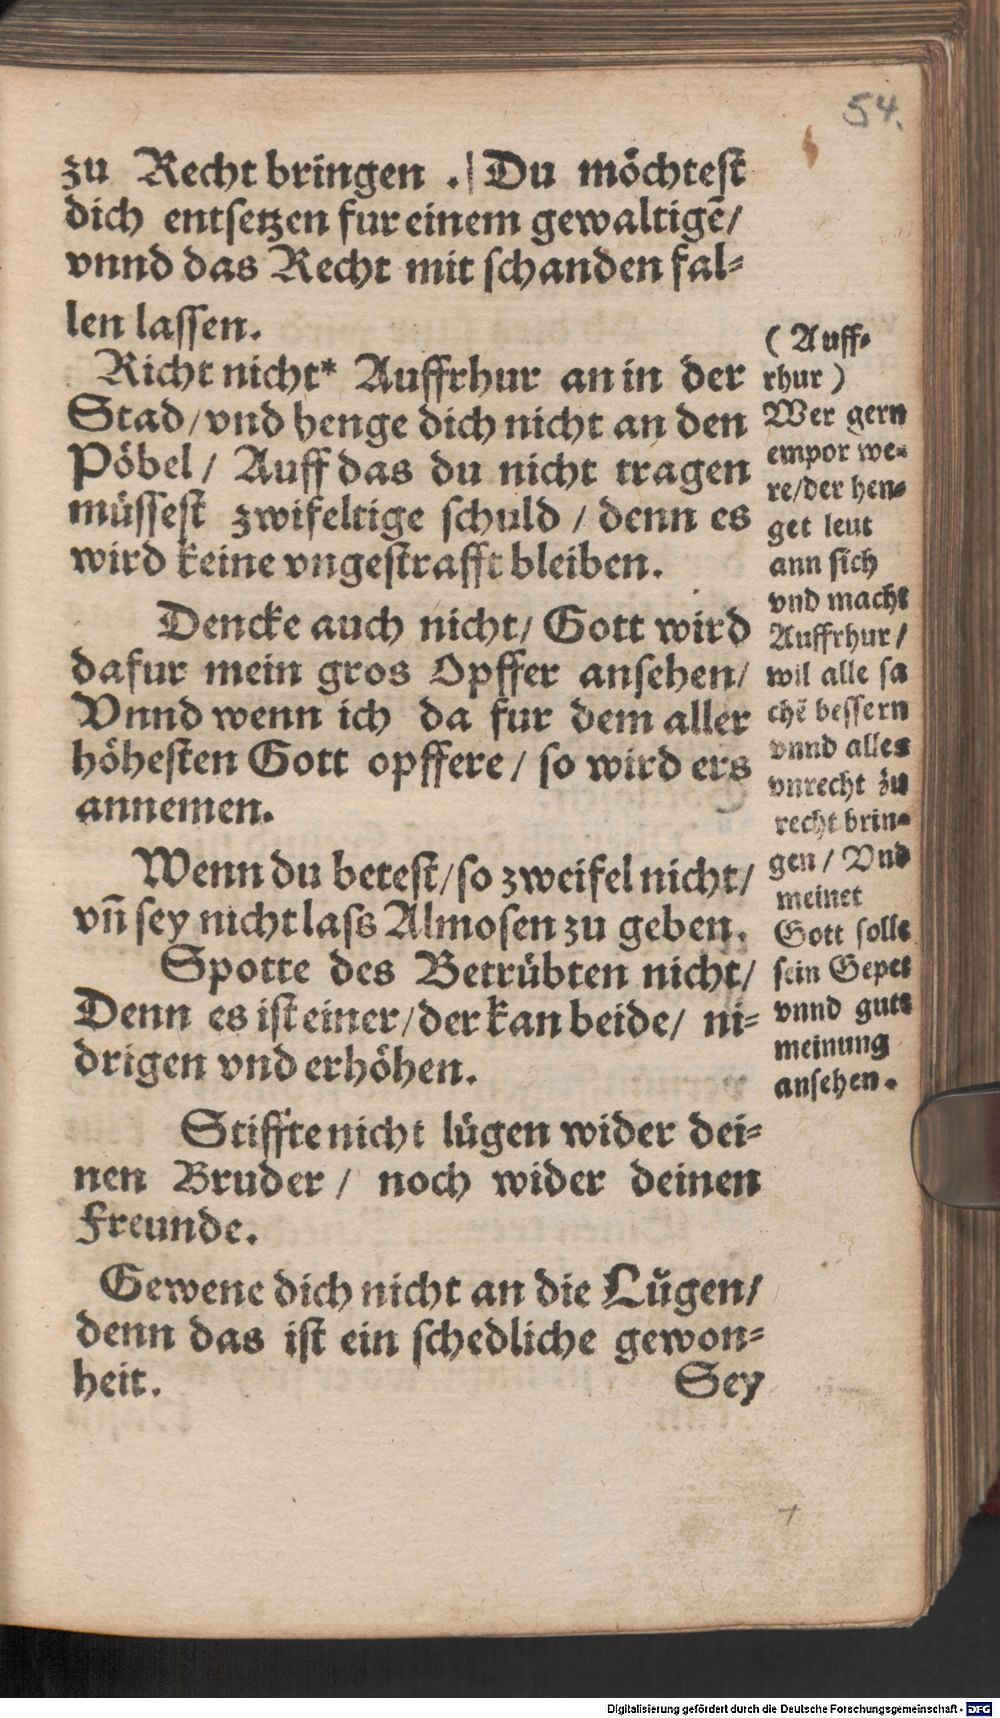 54.
zu Recht bringen . | Du möchtest
dich entsetzen fur einem gewaltigē/
vnnd das Recht mit schanden fal⸗
len lassen.
Richt nicht* Auffrhur an in der
Stad/vnd henge dich nicht an den
Pöbel/ Auff das du nicht tragen
müssest zwifeltige schuld / denn es
wird keine vngestrafft bleiben.
Dencke auch nicht/ Gott wird
dafur mein gros Opffer ansehen/
Vnnd wenn ich da fur dem aller
höhesten Gott opffere / so wird ers
annemen.
Wenn du betest/so zweifel nicht/
vn̄ sey nicht lass Almosen zu geben.
Spotte des Betrübten nicht/
Denn es ist einer/der kan beide/ ni⸗
drigen vnd erhöhen.
Stiffte nicht lügen wider dei⸗
nen Bruder / noch wider deinen
Freunde.
Gewene dich nicht an die Lügen/
denn das ist ein schedliche gewon⸗
heit.
Sey
( Auff⸗
rhur )
Wer gern
empor we⸗
re/der hen⸗
get leut
ann sich
vnd macht
Auffrhur /
wil alle sa
chē bessern
vnnd alles
vnrecht zu
recht brin⸗
gen / Vnd
meinet
Gott solle
sein Gepet
vnnd gute
meinung
ansehen.
Digitalisierung gefördert durch die Deutsche Forschungsgemeinschaft - DFG